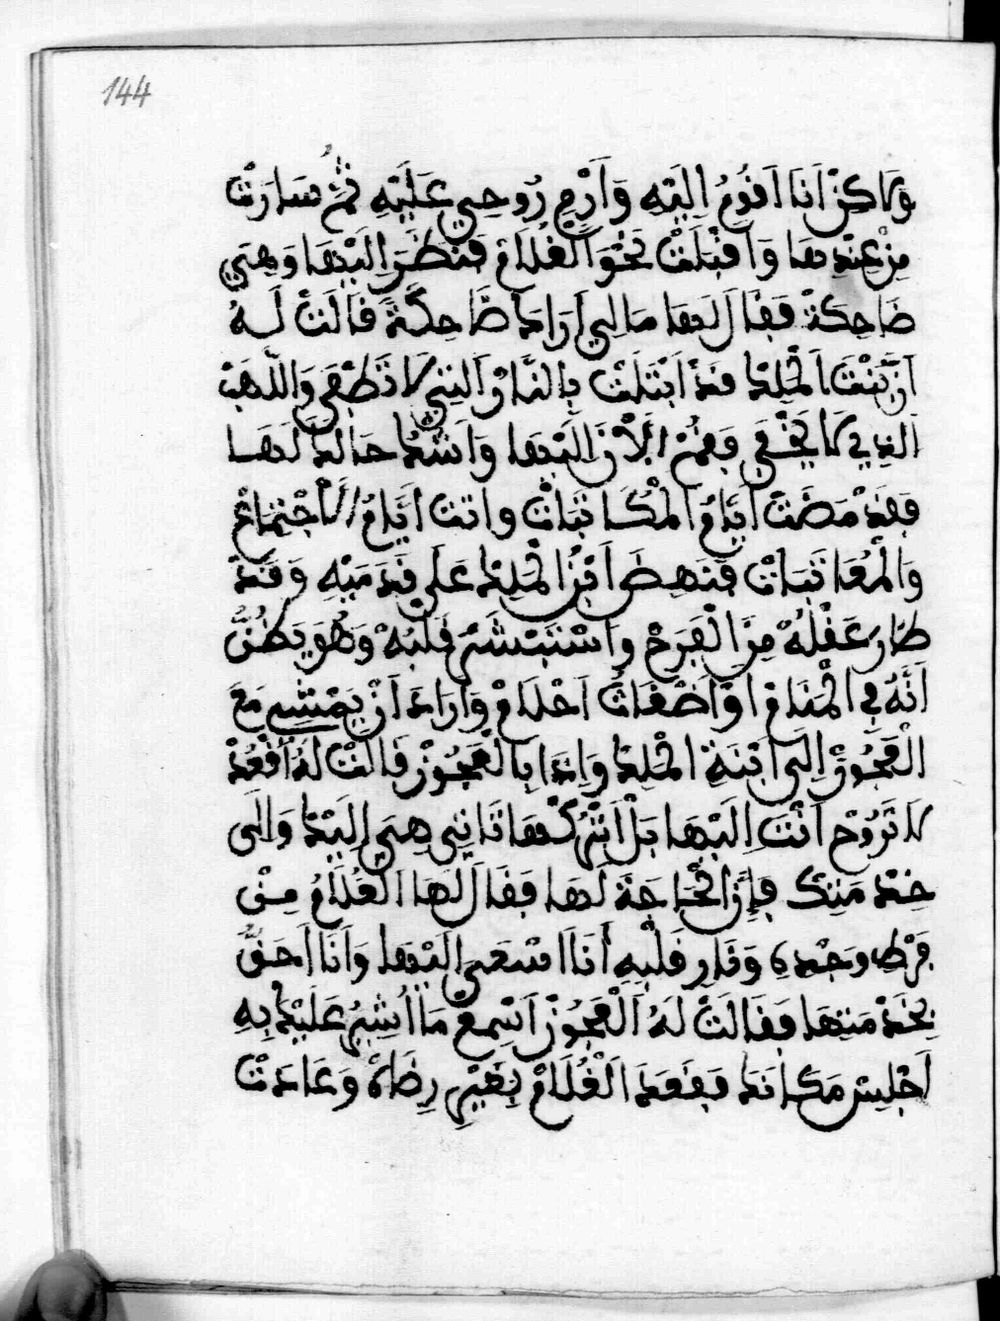 144
ولاكن انا افوم اليه وارم روحي عليه ثم سارت
من عندها وافبلت نحو الغلام فنظر اليها وهي
ضاحكة ففال لها مالي اراك ضاحكة فالت له
ان بنت الملك فد ابتلت بالنار التي لا تطفى واللهب
الذي لا يخفى ففم الان اليها واشك حالك لها
ففد مضت ايام المكاتبات واتت ايام الاجتماع
والمعاتبات فنهض ابن الملك على فدميه وفد
طار عفله من الفرح واستبشر فلبه وهو يظن
انه في المنام او اضغاث احلام واراد ان يمشي مع
العجوز الى ابنة الملك واذا بالعجوز فالت له افعد
لا تروح انت اليها بل اتركها تاتي هي اليك والى
خدمتك فإن الحاجة لها ففال لها الغلام من
فرط وجدي ونار فلبه أنا اسعى اليها وانا احق
بخدمتها ففالت له العجوز اسمع ما اشير عليك به
اجلس مكانك ففعد الغلام بغير رضاه وعادت